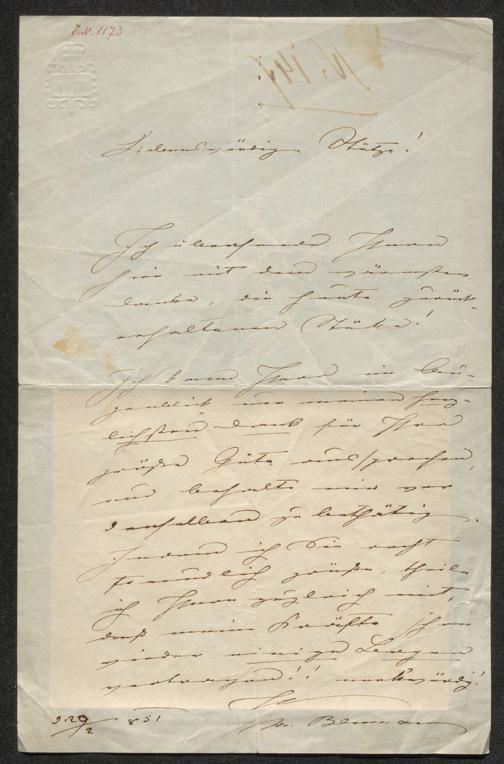 J.N. 1173
N. 147.
Liebenswürdige Stütze!
Ich übersende Ihnen
hier mit dem wärmsten
danke, die heute zurück-
erhaltenen Stüke!
Ich kann Ihnen im Au-
genblik nur meinen herz-
lichsten dank für Ihre
große Güte aussprechen,
und behalte mir vor
denselben zu bethätigen.
Indem ich Sie recht
freundlich grüße, theile
ich Ihnen zugleich mit,
daß meine Kräfte schon
wieder einige
vertragen!! merkwürdig!
d. 29/2 851